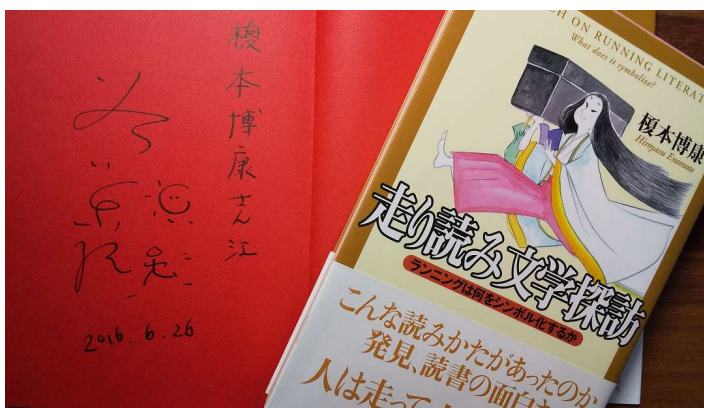 榎本博康さん江
2016.6.26
CH ON RUNNING LITERAT
What does it symbolize?
榎本博康
Hiroyasu Enomoto
走り読み文学探訪
ランニングは何をシンボル化するか
こんな読みかたがあったのか
発見、読書の面白
人は走って